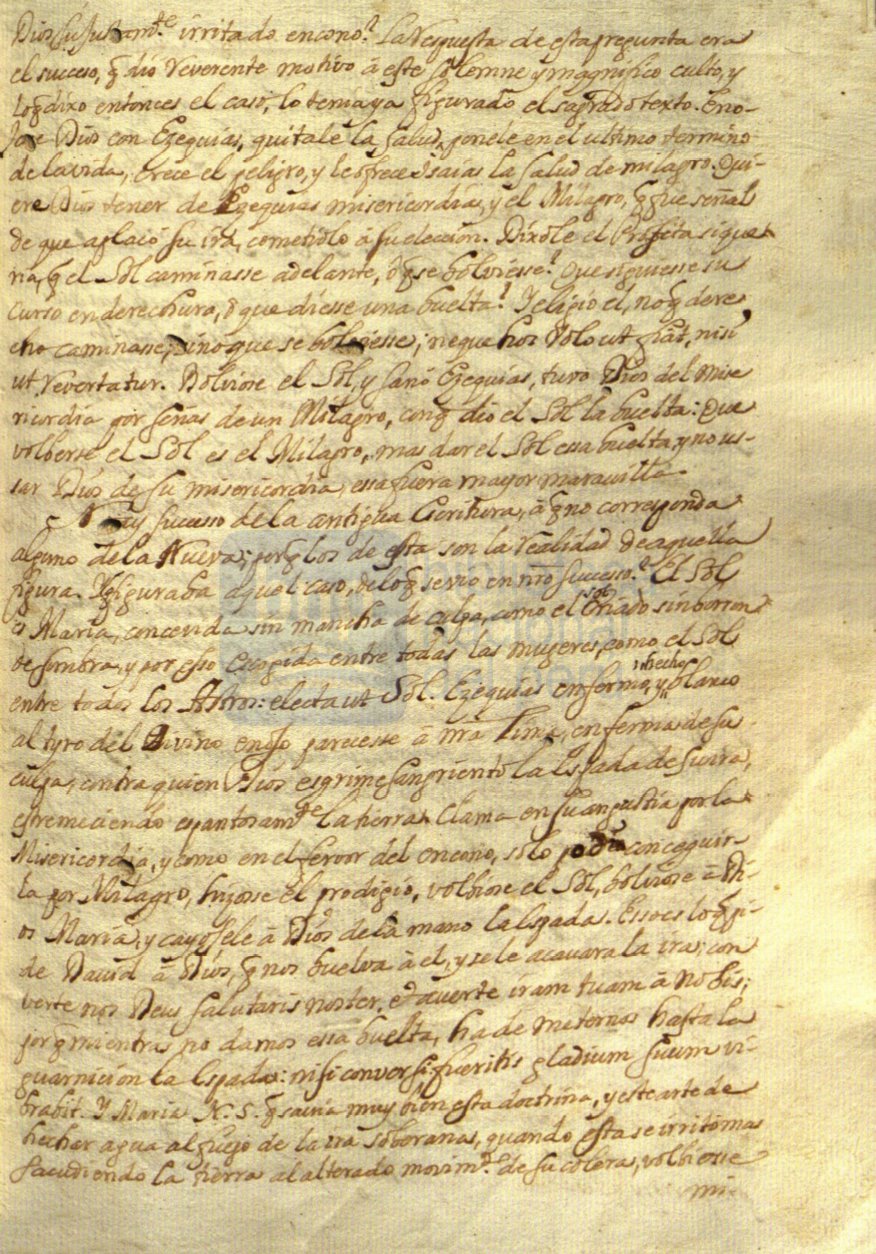 Dios su justam.te irritado encono? La respuesta de esta pregunta era
el sucseso, q̃ dio reverente motivo â este solemne y magnifico culto, y
lo q̃ dixo entonces el caso, lo tenia ya figurado el sagrado texto. Eno-
jase Dios con Ezequias, quitale la salud, ponele en el ultimo termino
de la vida, crece el peligro, y le ofrece Isaias la salud de milagro. Qui-
ere Dios tener de Ezequias misericordias, y el Milagro, q̃ fue señal
de que aplacó su ira, cometiolo â su eleccion. Dixole el Profeta si que
ria, q̃ el Sol caminasse adelante, ô q̃ se bolviesse? Que siguiesse su
curso en derechura, ô que diesse una buelta? Y eligio el, no q̃ dere
cho caminasse, sino que se bolviesse; neque hoc volo ut fiat, nisi
ut revertatur. Bolviose el Sol, y sanó Ezequias, tuvo Dios del mise
ricordia por señas de un Milagro, con q̃ dio el Sol la buelta: Que
volberse el Sol es el Milagro, mas dar el Sol essa buelta, y no us-
sar Dios de su misericordia, essa fuera mayor maravilla.
No ay sucesso de la antigua Escritura, â q̃ no corresponda
alguno de la Nueva; porq̃ los de esta son la realidad de aquella
figura. Y q̃ figuraba aquel caso, de lo q̃ se vio en nrô sucesso? El Sol
es Maria, concevida sin mancha de culpa, como el sol criado sin borron
de sombra, y por esso escogida entre todas las mugeres, como el Sol
entre todos los Astros: electa ut Sol. Ezequias enfermo, y hecho blanco
al tyro del Divino enojo parecesse â nrâ Lima, enferma de su
culpa, contra quien Dios esgrime sangriento la Espada de su ira,
estremeciendo espantosam.te la tierra. Clama en su angustia por la
Misericordia, y como en el fervor del encono, solo podia conceguir-
la por Milagro, hizose el prodigio, volbiose el Sol, bolviose â Di-
os Maria, y cayosele â Dios de la mano la Espada. Esso es lo q̃ pi-
de David â Dios, q̃ nos buelva â el, y se le acavara la ira; con
verte nos Deus salutaris noster, et averte iram tuam â nobis;
porq̃ mientras no damos essa buelta, ha de meternos hasta la
guarnicion la Espada: nisi conversi fueritis gladium suum vi-
brabit. Y Maria N. S. q̃ savia muy bien esta doctrina, y este arte de
hechar agua al fuego de la ira soberana, quando esta se irritó mas
sacudiendo la tierra al alterado movim.to de su colera, volbiosse
mi-